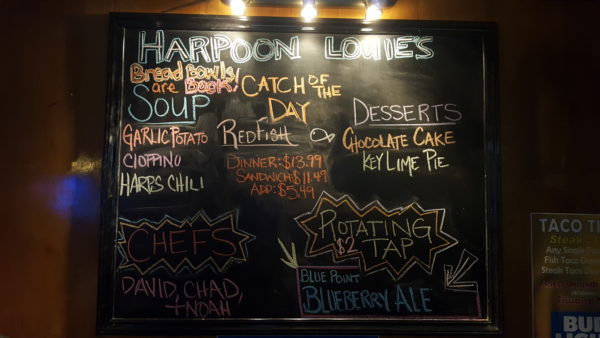 HARPOON LOUIE'S
Bread Bowls
are Back!
SOUP
GARLIC POTATO
CIOPPINO
HARPS CHILI
CATCH OF THE
DAY
REDFISH
DINNER: $13.99
SANDWICH: $11.49
ADD: $5.49
DESSERTS
CHOCOLATE CAKE
KEY LIME PIE
CHEFS
DAVID, CHAD,
+ NOAH
ROTATING
$2 TAP
BLUE POINT
BLUEBERRY ALE
TACO
Steak
Any Single
Fish Taco
Steak Taco